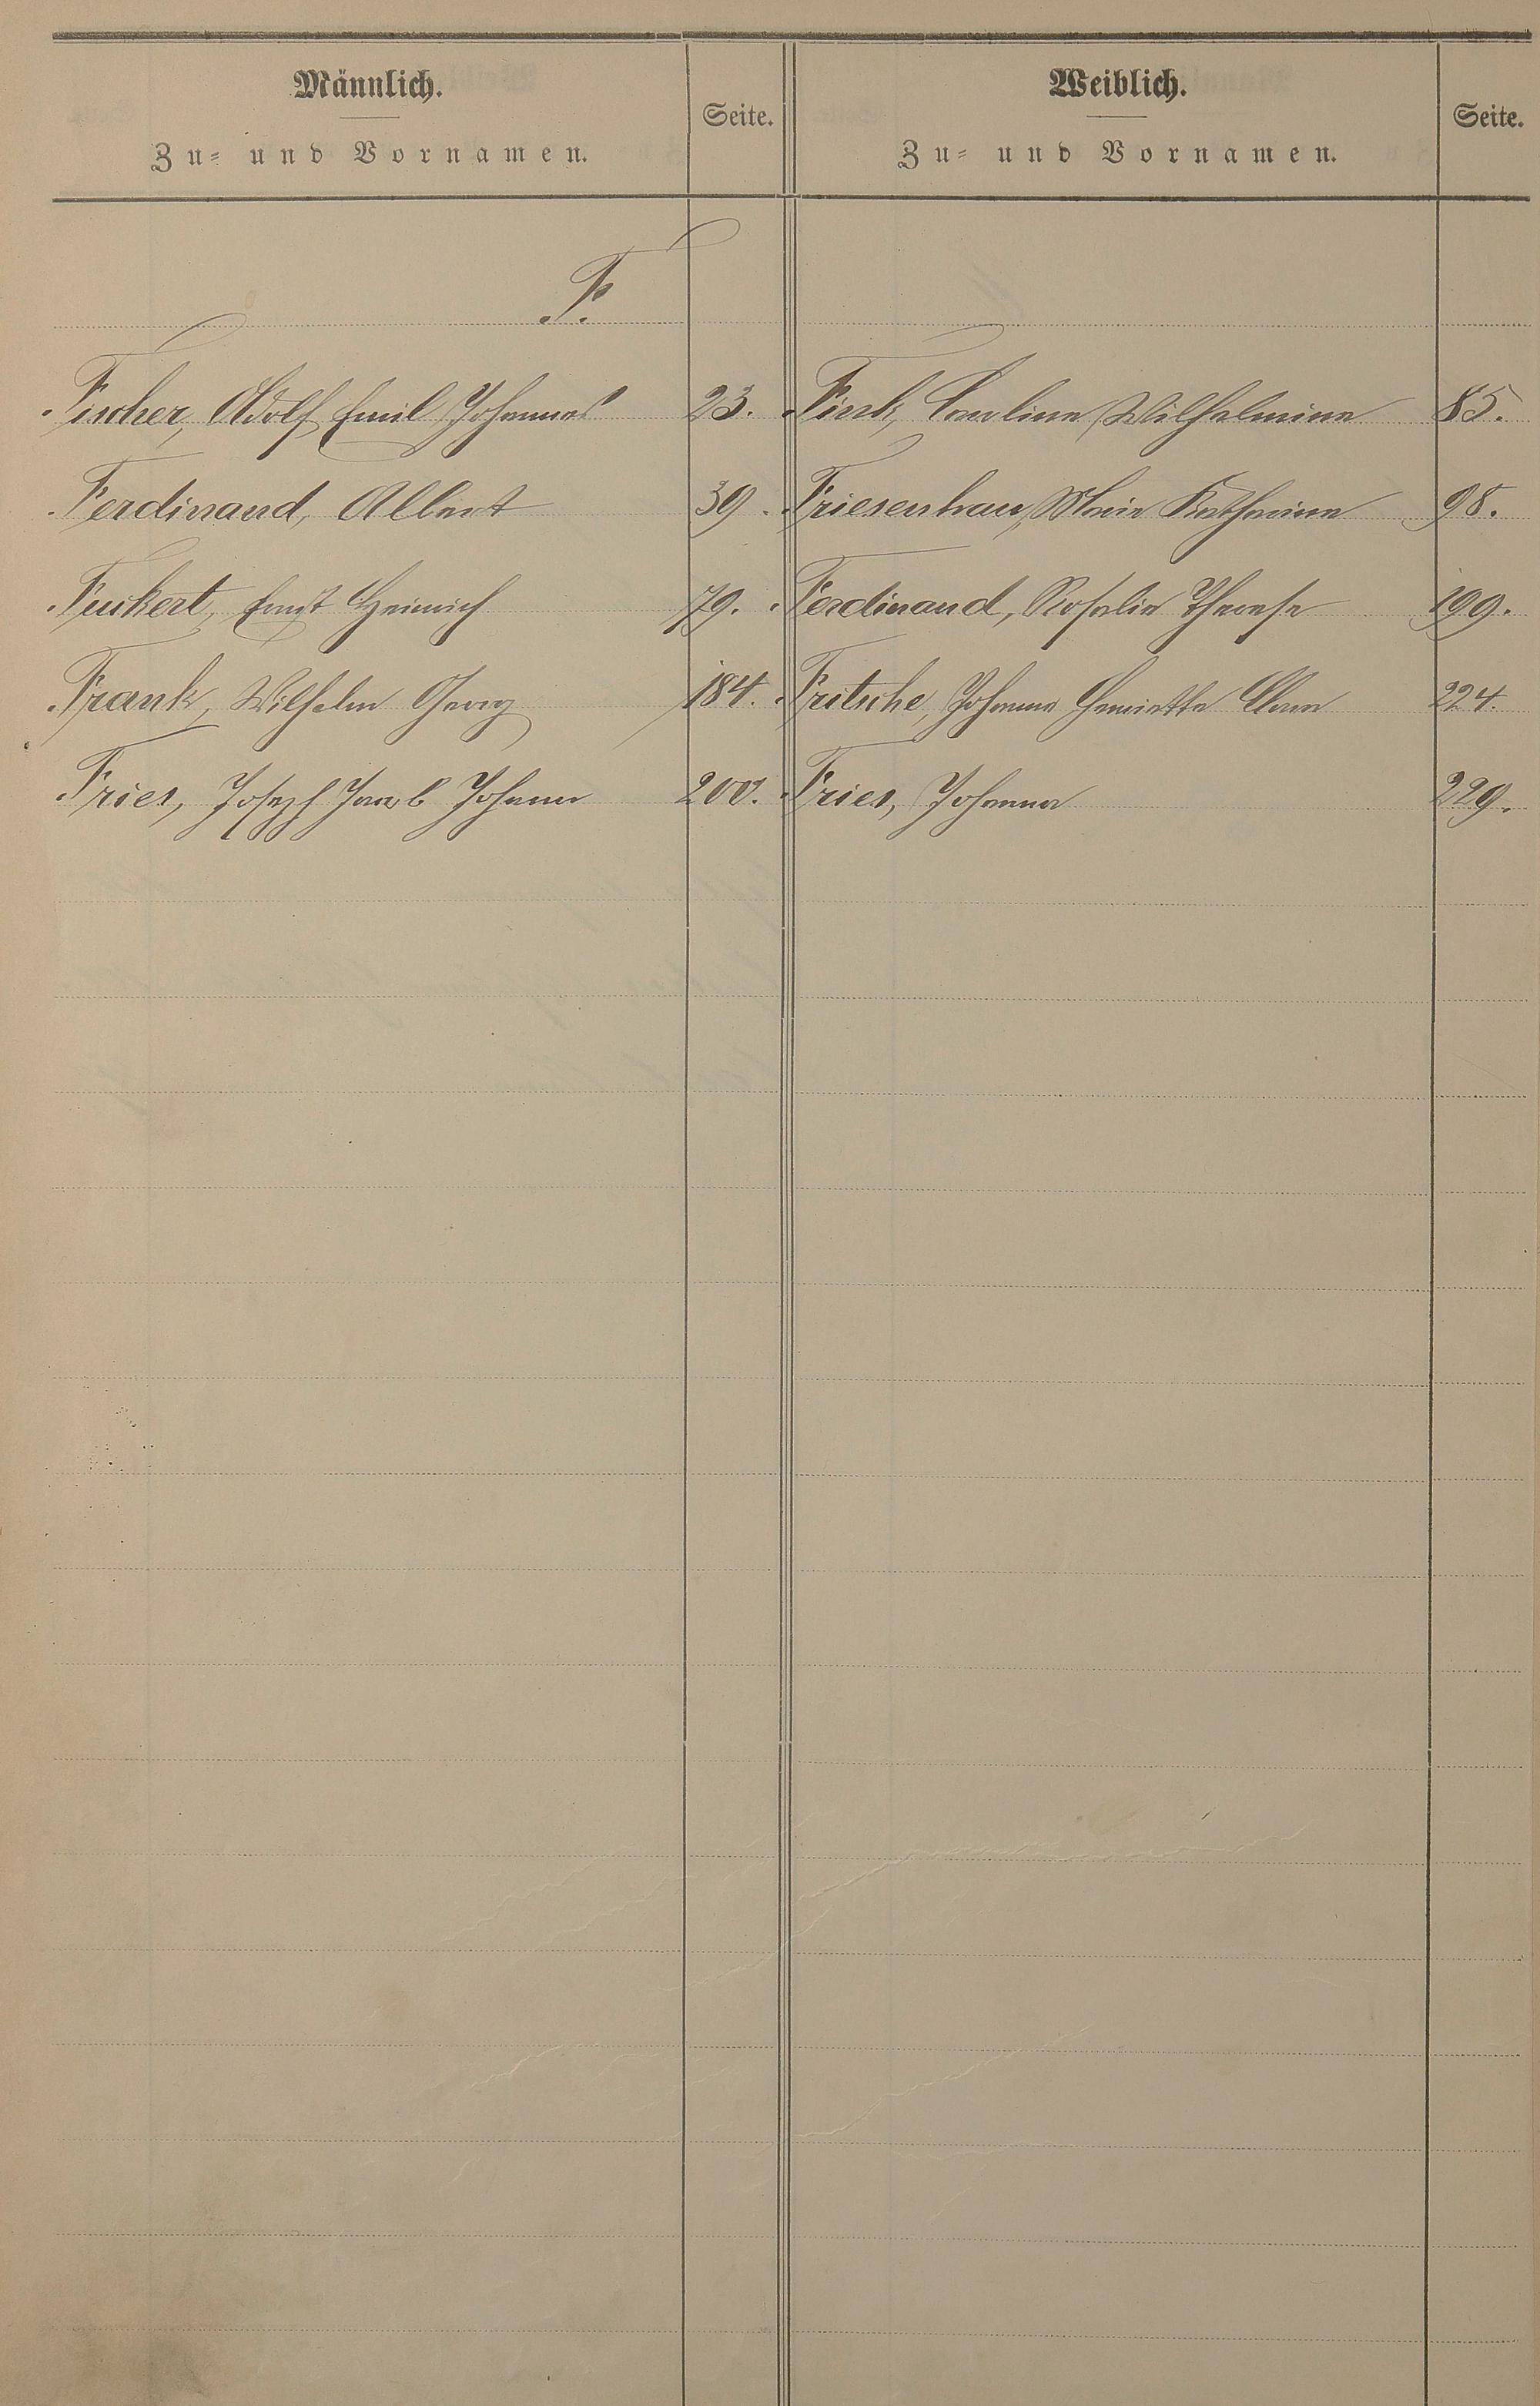 Männlich.
Zu- und Vornamen.
Seite.
Weiblich.
Zu- und Vornamen.
Seite.
F.
Fischer, Adolf Emil Johannes 23.
Ferdinand, Albert 39.
Fuckert, Ernst Heinrich 79.
Frank, Wilhelm Georg 184.
Fries, Joseph Jacob Johann 200.
Fink, Karoline Wilhelmine 85.
Friesenhau, Marie Katharina 98.
Ferdinand, Rosalie Therese 199.
Fritsche, Johanna Henriette Clara 224.
Fries, Johanna 229.